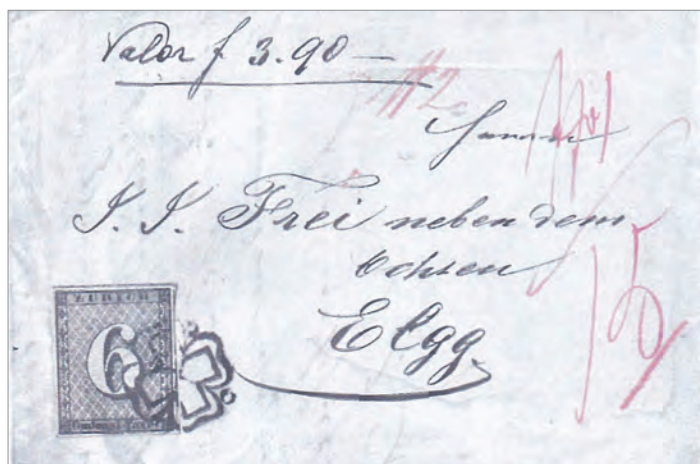 Valor f 3.90 —
#2
Herrn
J. J. Frei neben dem
Ochsen
Elgg.
15
ZURICH
6